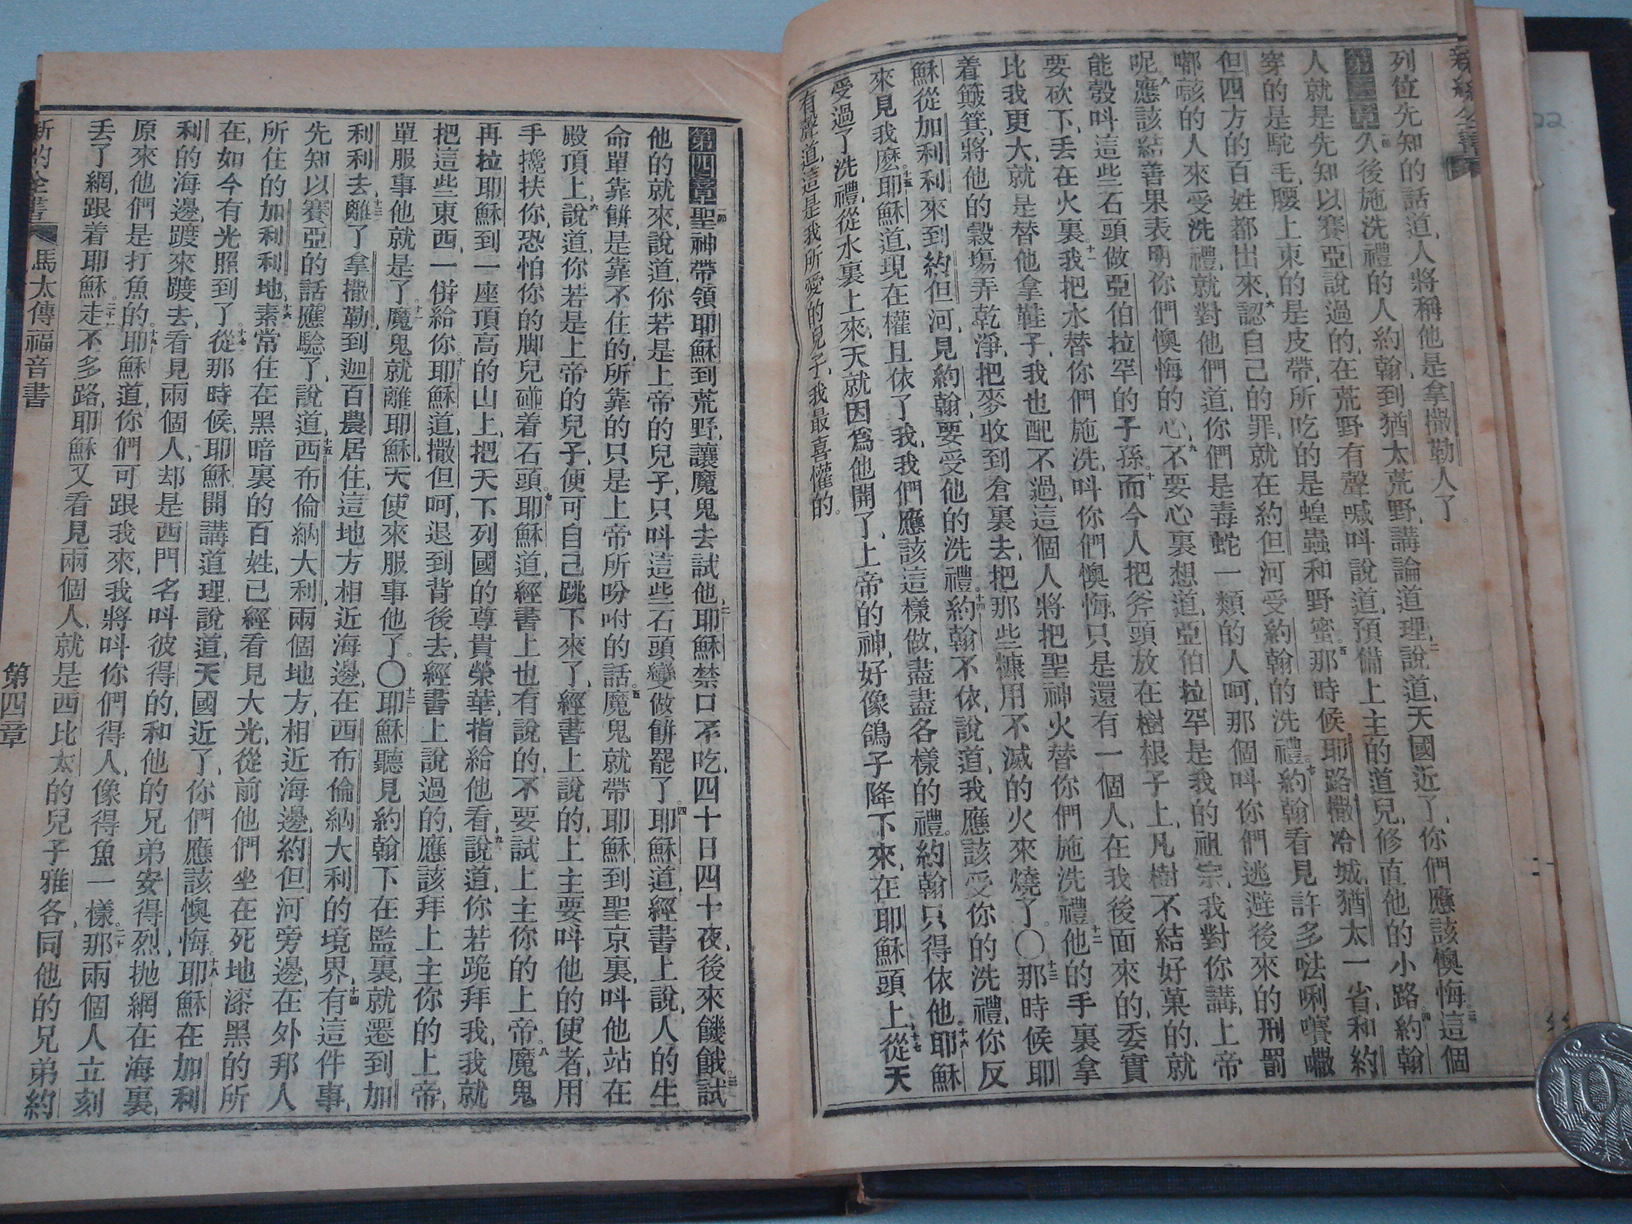 列位先知的話道、人將稱他是拿撒勒人了。
第三章久後施洗禮的人約翰到猶太荒野、講論道理、說道、天國近了、你們應該懊悔、這個
人就是先知以賽亞說過的、在荒野有聲喊呌說道、預備上主的道兒、修直他的小路、約翰
穿的是駝毛、腰上束的是皮帶、所吃的是蝗蟲和野蜜、那時候耶路撒冷城猶太一省、和約
但四方的百姓都出來、認自己的罪、就在約但河受約翰的洗禮、約翰看見許多㗶唎㘔𠿕
嘟㗨的人來受洗禮、就對他們道、你們是毒蛇一類的人呵、那個呌你們逃避後來的刑罰
呢、應該結善果表明你們懊悔的心、不要心裏想道、亞伯拉罕是我的祖宗、我對你講、上帝
能彀呌這些石頭做亞伯拉罕的子孫、而今人把斧頭放在樹根子上、凡樹不結好菓的、就
要砍下、丟在火裏、我把水替你們施洗、呌你們懊悔、只是還有一個人、在我後面來的、委實
比我更大、就是替他拿鞋子、我也配不過、這個人將把聖神火替你們施洗禮、他的手裏拿
着簸箕、將他的穀塲弄乾淨、把麥收到倉裏去、把那些糠用不滅的火來燒了。〇那時候耶
穌從加利利來到約但河、見約翰要受他的洗禮、約翰不依、說道、我應該受你的洗禮、你反
來見我麽、耶穌道、現在權且依了我、我們應該這樣做、盡盡各樣的禮。約翰只得依他、耶穌
受過了洗禮、從水裏上來、天就因爲他開了、上帝的神、好像鴿子降下來、在耶穌頭上、從天
有聲道、這是我所愛的兒子、我最喜懽的。
第四章聖神帶領耶穌到荒野、讓魔鬼去試他、耶穌禁口不吃、四十日四十夜、後來饑餓、試
他的就來說道、你若是上帝的兒子、只呌這些石頭變做餅罷了、耶穌道、經書上說、人的生
命單靠餅是靠不住的、所靠的只是上帝所吩咐的話、魔鬼就帶耶穌到聖京裏、呌他站在
殿頂上、說道、你若是上帝的兒子、便可自己跳下來了、經書上說的、上主要呌他的使者、用
手攙扶你、恐怕你的脚兒碰着石頭、耶穌道、經書上也有說的、不要試上主你的上帝、魔鬼
再拉耶穌到一座頂高的山上、把天下列國的尊貴榮華、指給他看、說道、你若跪拜我、我就
把這些東西、一併給你、耶穌道、撒但呵、退到背後去、經書上說過的、應該拜上主你的上帝、
單服事他就是了、魔鬼就離耶穌、天使來服事他了。〇耶穌聽見約翰下在監裏、就遷到加
利利去、離了拿撒勒、到迦百農居住、這地方相近海邊、在西布倫納大利的境界、有這件事、
先知以賽亞的話應驗了、說道、西布倫納大利兩個地方、相近海邊、約但河旁邊、在外邦人
所住的加利利地、素常住在黑暗裏的百姓、已經看見大光、從前他們坐在死地漆黑的所
在、如今有光照到了、從那時候、耶穌開講道理、說道、天國近了、你們應該懊悔、耶穌在加利
利的海邊、踱來踱去、看見兩個人、却是西門名呌彼得的、和他的兄弟安得烈、抛網在海裏、
原來他們是打魚的、耶穌道、你們可跟我來、我將呌你們得人、像得魚一樣、那兩個人立刻
丢了網、跟着耶穌、走不多路、耶穌又看見兩個人、就是西比太的兒子雅各、同他的兄弟約
馬太傳福音書 第四章
22
10